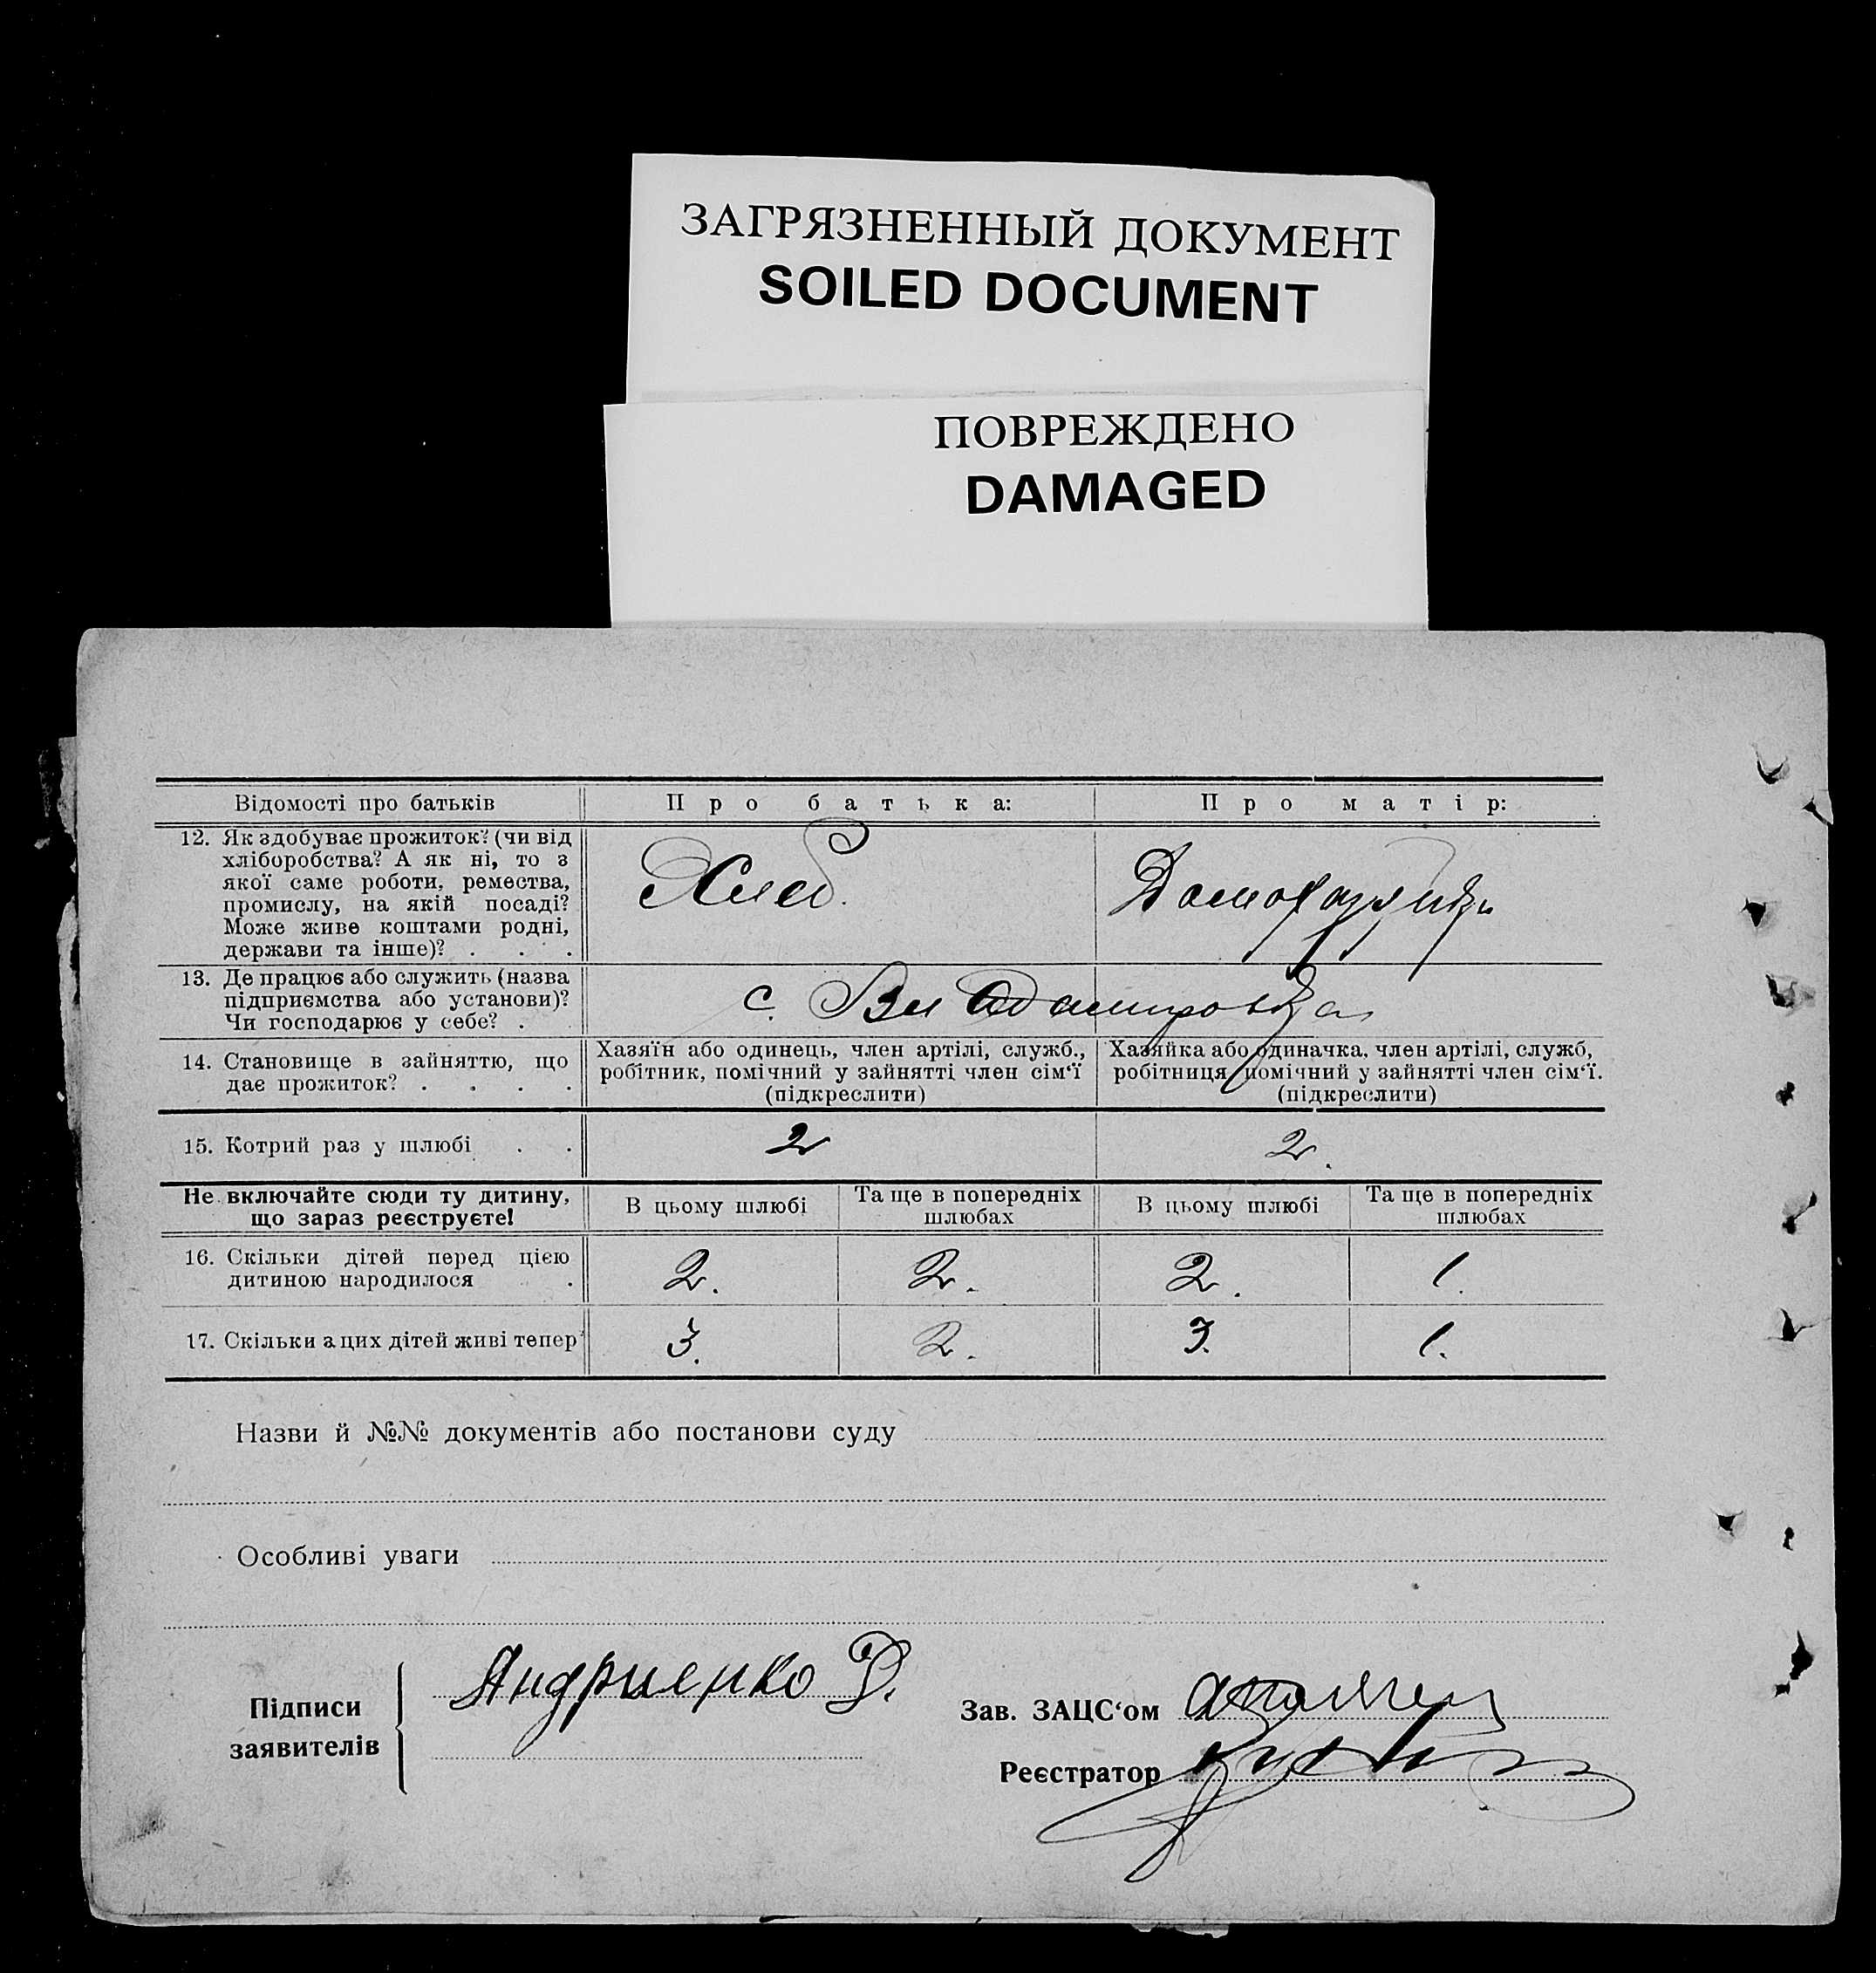 ЗАГРЯЗНЕННЫЙ ДОКУМЕНТ
SOILED DOCUMENT
ПОВРЕЖДЕНО
DAMAGED
Відомості про батьків Про батька: Про матір:
12. Як здобуває прожиток? (чи від
хліборобства? А як ні, то з
якої саме роботи, ремества,
промислу, на якій посаді?
Може живе коштами родні,
держави та інше)? . . .
Хліб.
13. Де працює або служить (назва
підприємства або установи)?
Чи господарює у себе? .
с.
14. Становище в зайняттю, що
дає прожиток? . . . .
Хазяїн або одинець, член артілі, служб.,
робітник, помічний у зайнятті член сім‘ї
(підкреслити)
Хазяйка або одиначка, член артілі, служб,
робітниця помічний у зайнятті член сім‘ї.
(підкреслити)
15. Котрий раз у шлюбі . . 2 2.
Не включайте сюди ту дитину,
що зараз реєструєте!
В цьому шлюбі
Та ще в попередніх
шлюбах
В цьому шлюбі
Та ще в попередніх
шлюбах
16. Скільки дітей перед цією
дитиною народилося .
2. 2. 2. 1.
17. Скільки з цих дітей живі тепер 3. 2. 3. 1.
Назви й №№ документів або постанови суду
Особливі уваги
Підписи
заявителів
Андриенко Д.
Зав. ЗАЦС‘ом
Реєстратор